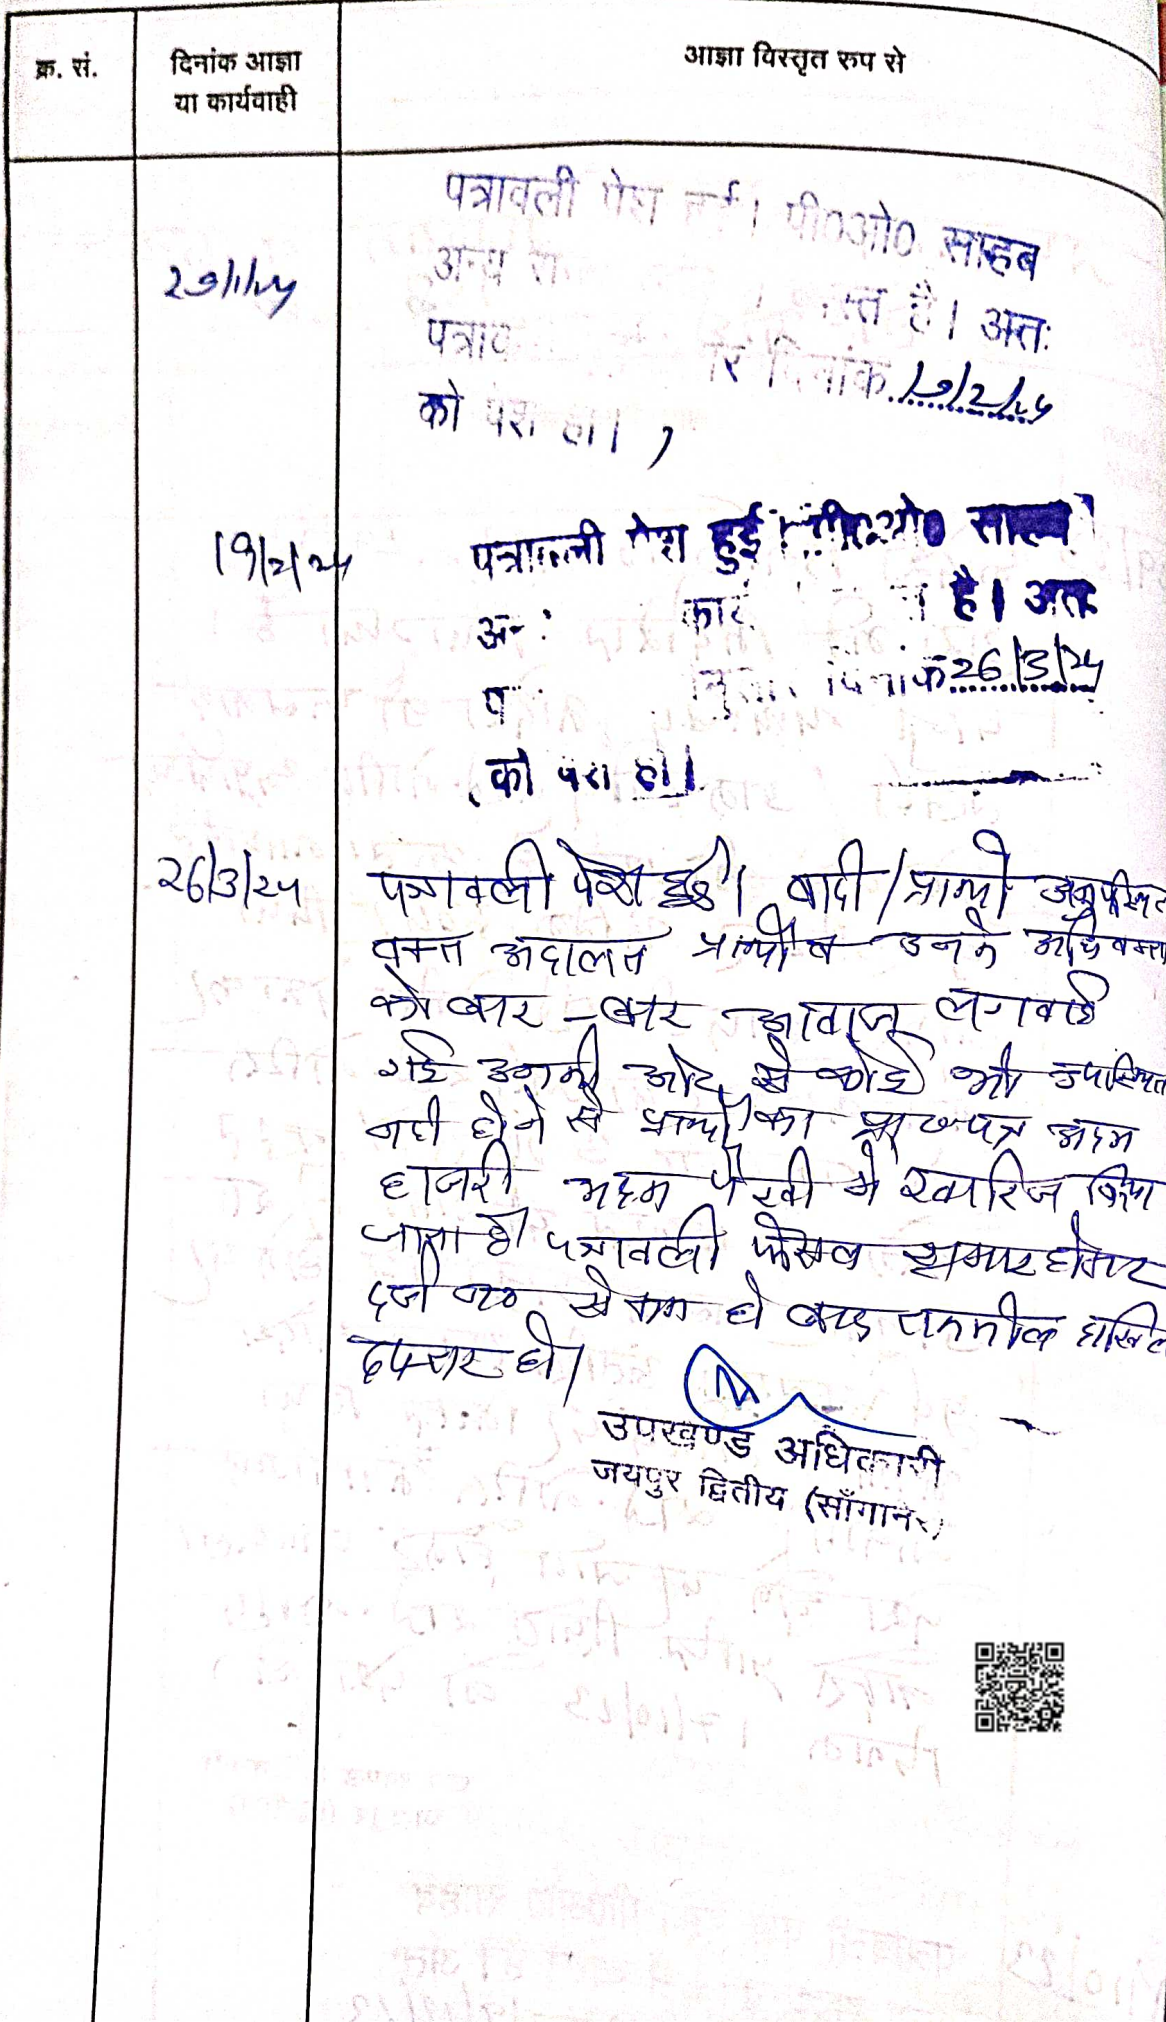 क्र. सं.
दिनांक आज्ञा
या कार्यवाही
आज्ञा विस्तृत रुप से
पत्रावली पेश हुई। पी०ओ० साहब
अन्य
है। अतः
दिनांक
को पेश हो।
19/2/24
पेश हुई
है। अतः
26/3/24
को पेश हो।
26/3/24
पत्रावली पेश हुई। वादी/प्रार्थी अनुपस्थित
वक्त अदालत प्रार्थी व उनके अधिवक्ता
को बार-बार आवाज लगवाई
गई उनकी ओर से कोई भी उपस्थित
नही होने से प्रार्थी का प्रा० पत्र अदम
हाजरी अदम पैरवी मे खारिज किया
जाता है। पत्रावली फैसल शुमार होकर
दर्ज न० से कम हो बाद तकमील दाखिल
दफ्तर हो।
उपखण्ड अधिकारी
जयपुर द्वितीय (साँगानेर)